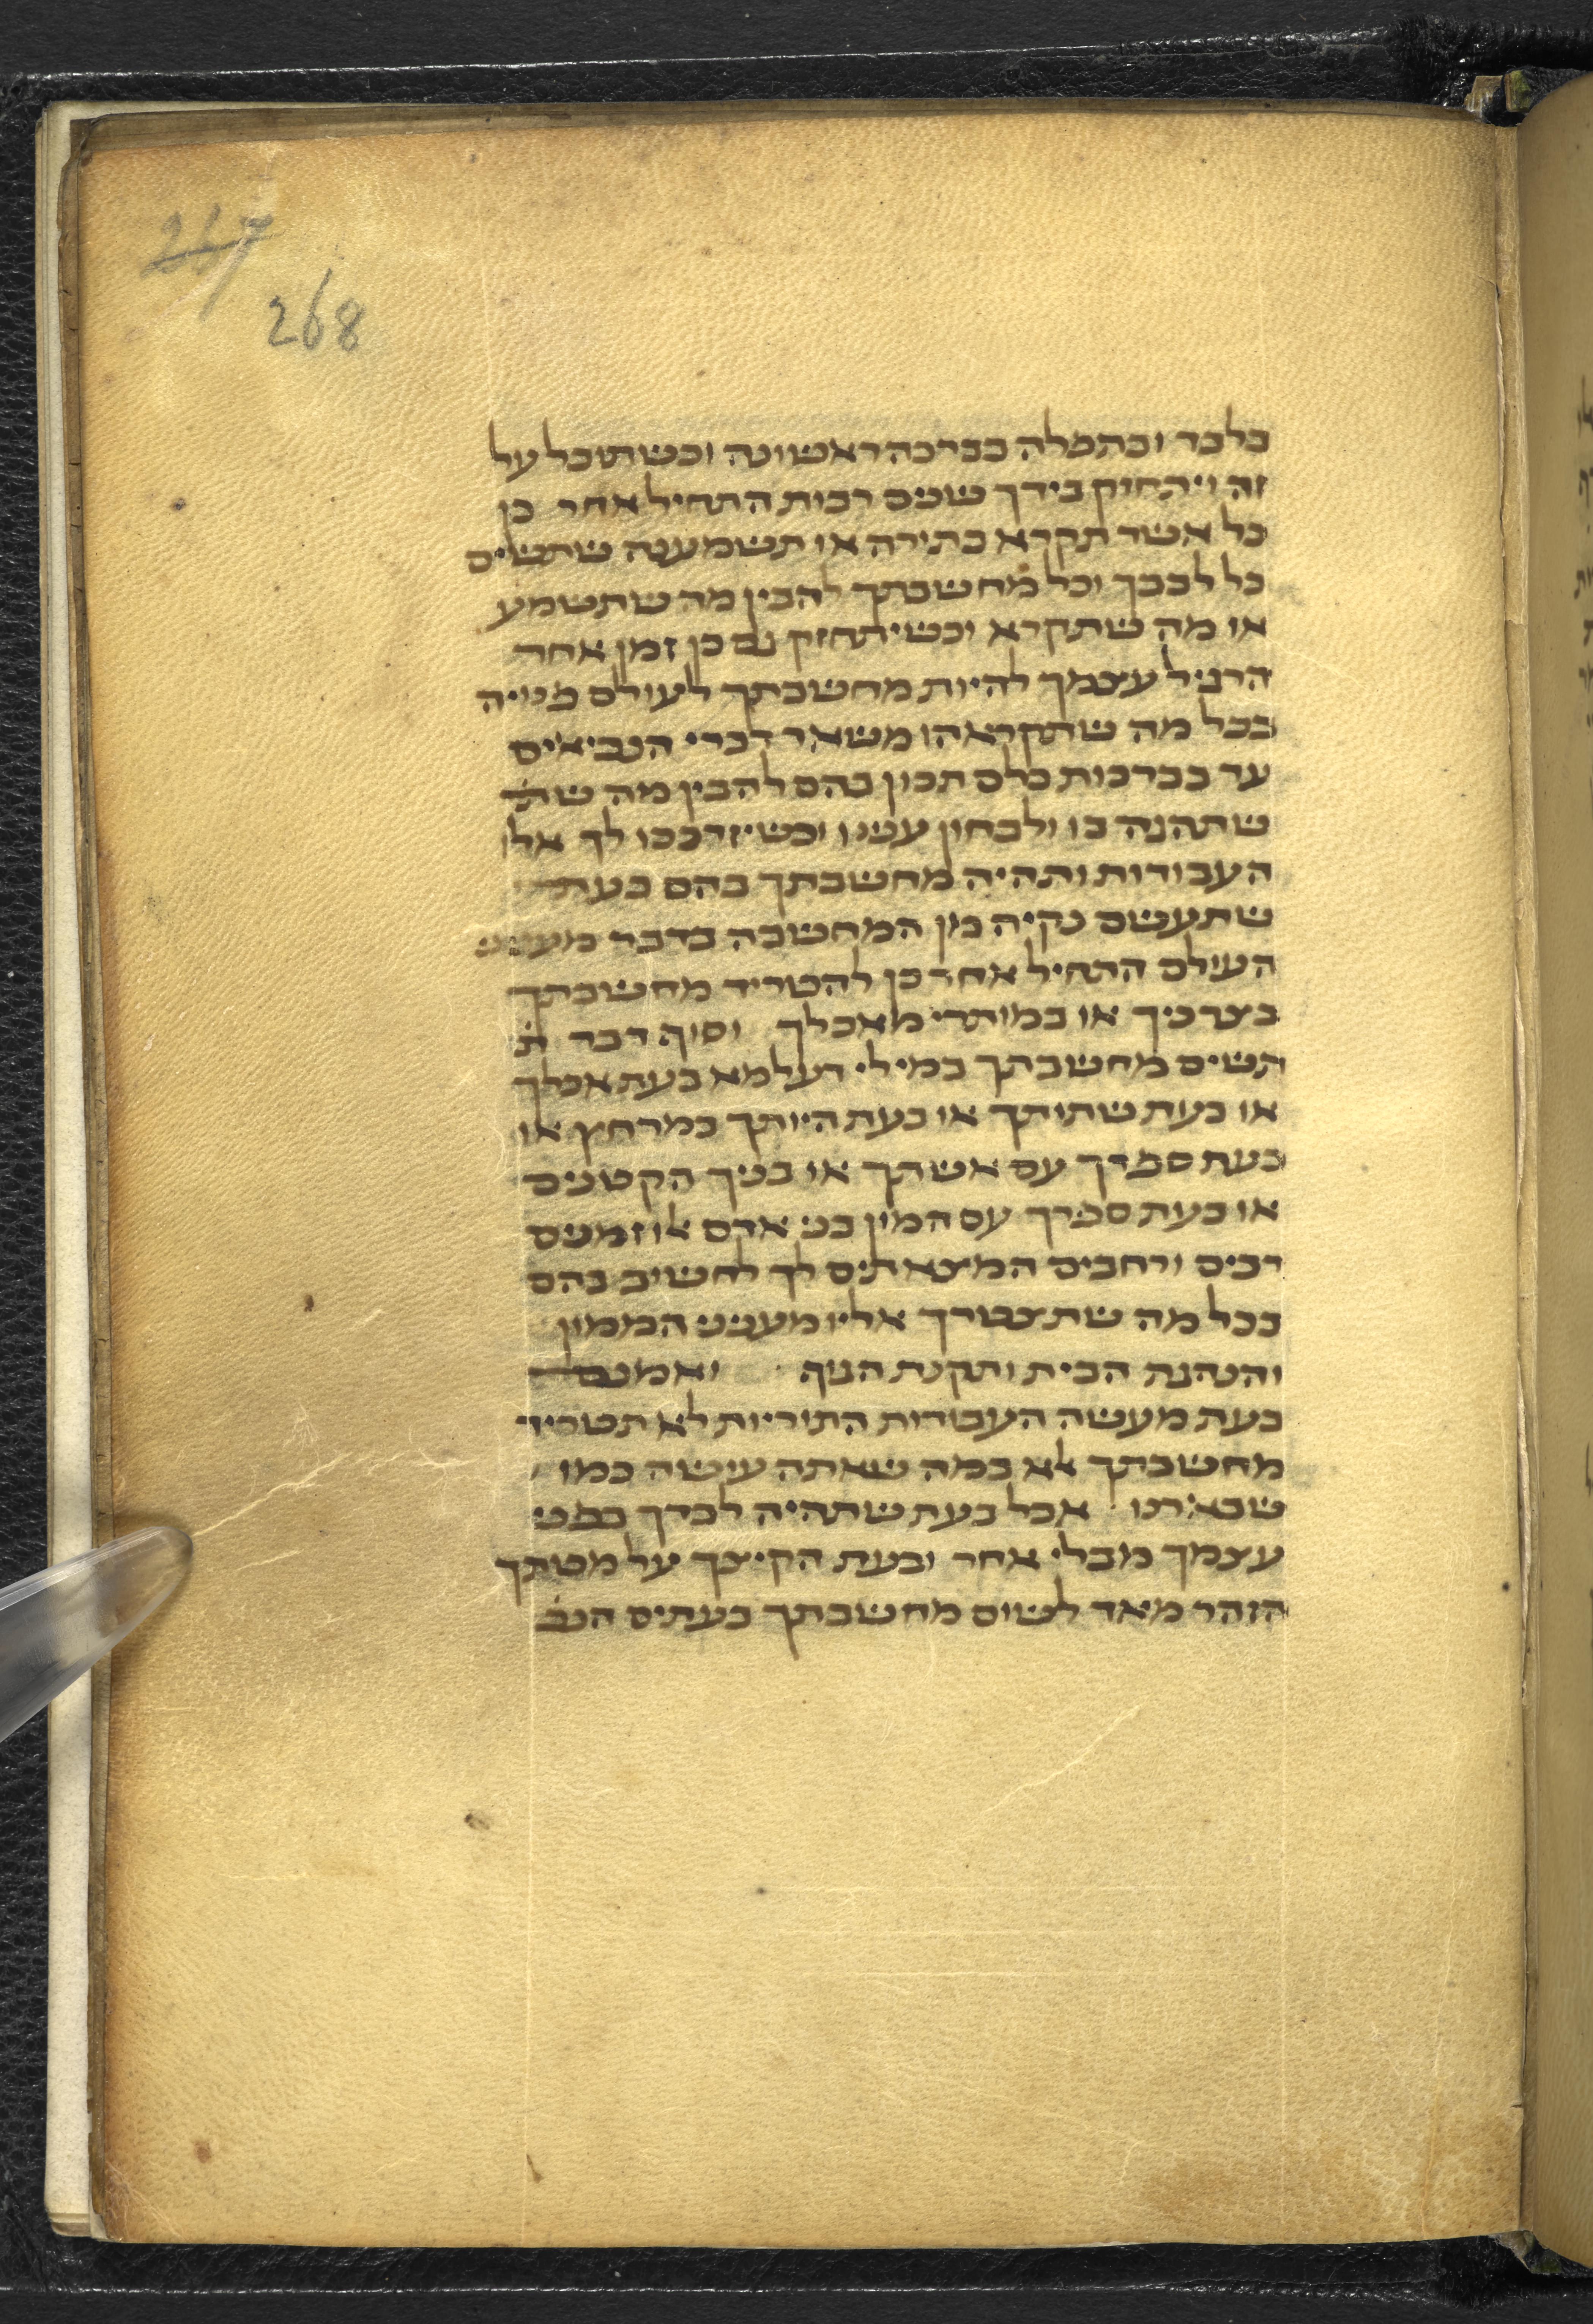 267
268
בלבד ובתפלה בברכה ראשונה וכשתוכל על
זה ויתחזק בידך שנים רבות התחיל אחר כן
כל אשר תקרא בתורה או תשמענה שתשים
כל לבבך וכל מחשבתך להבין מה שתשמע
או מה שתקרא וכשיתחזק גם כן זמן אחר
הרגיל עצמך להיות מחשבתך לעולם פנויה
בכל מה שתקראהו משאר דברי הנביאים
עד בברכות כלם תכון בהם להבין מה שת
שתהגה בו ולבחון ענינו וכשיזדככו לך אלו
העבודות ותהיה מחשבתך בהם בעת
שתעשם נקיה מן המחשבה בדבר מעניני
העולם התחיל אחר כן להטריד מחשבתך
בצרכיך או במותרי מאכלך וסוף דבר ת
תשים מחשבתך במילי דעלמא בעת אכלך
או בעת שתותך או בעת היותך במרחץ או
בעת ספרך עם אשתך או בניך הקטנים
או בעת ספרך עם המון בני אדם אלו זמנים
רבים ורחבים המצאתים לך לחשוב בהם
בכל מה שתצטרך אליו מעניני הממון
והנהגת הבית ותקנת הגוף ואמנם
בעת מעשה העבודות התוריות לא תטריד
מחשבתך אלא במה שאתה עושה כמו
שבארנו אבל בעת שתהיה לבדך בפני
עצמך מבלי אחר ובעת הקיצך על מטתך
הזהר מאד לשום מחשבתך בעתים הנכ